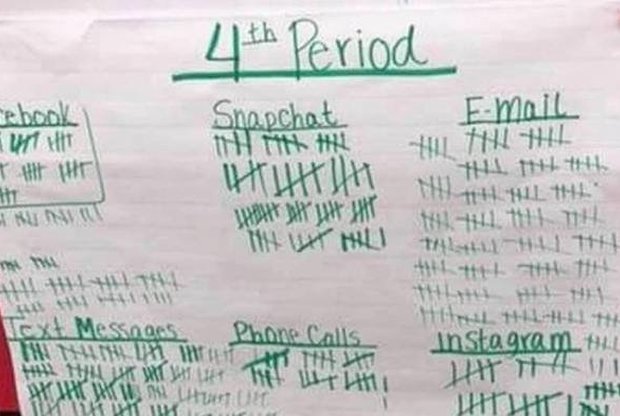 4th Period
ebook
Snapchat
E-mail
Text Messages
Phone Calls
Instagram